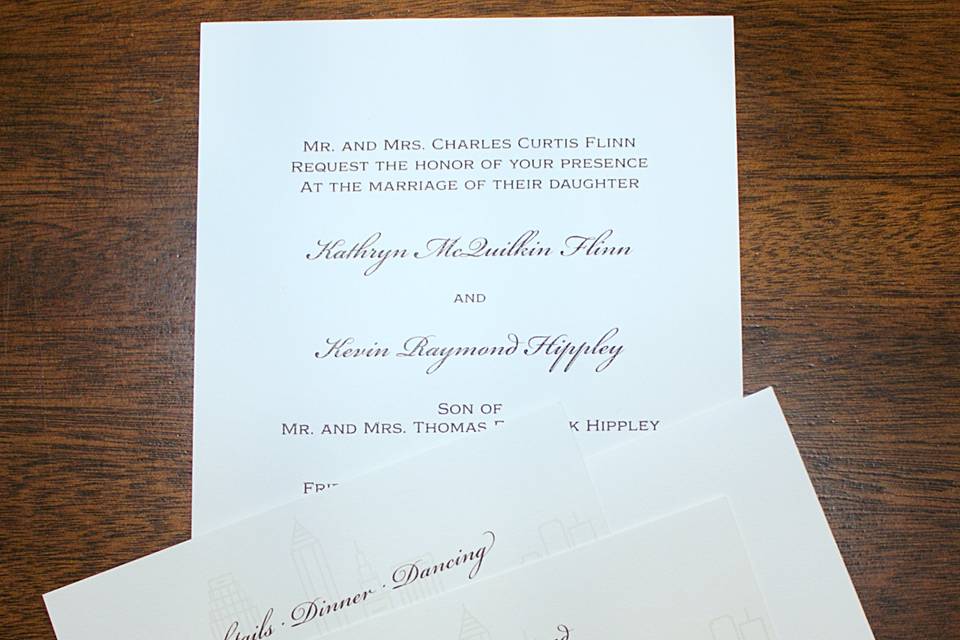 Mr. and Mrs. Charles Curtis Flinn
Request the honor of your presence
At the marriage of their daughter
Kathryn McQuilkin Flinn
and
Kevin Raymond Hippley
Son of
Mr. and Mrs. Thomas Hippley
Dinner · Dancing